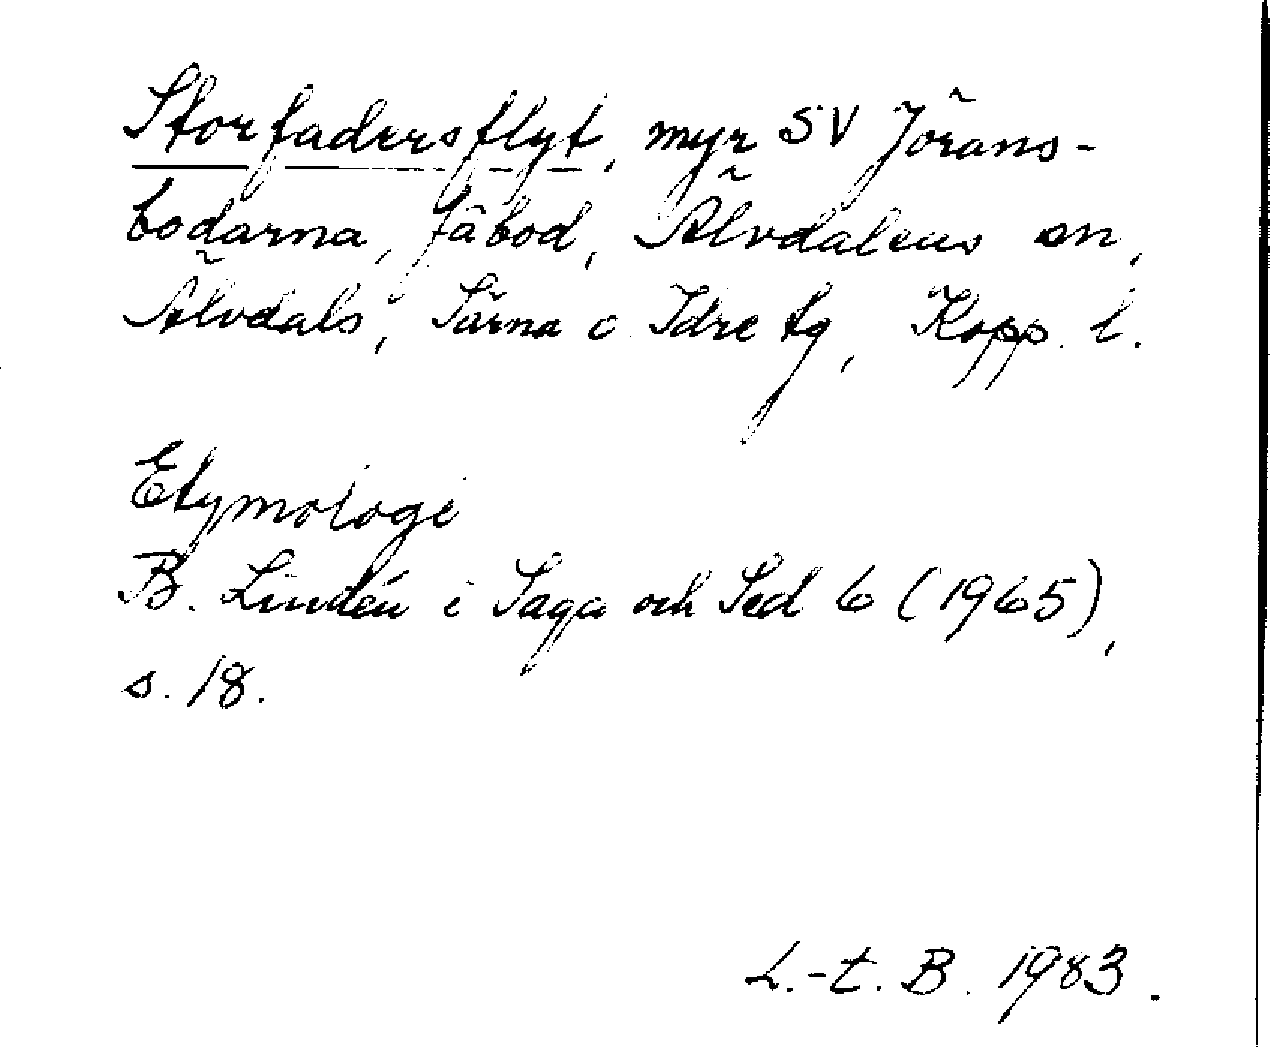 Storfadersflyt, myr SV Jörans-
bodarna, fäbod, Älvdalens sn,
Älvdals, Särna o Idre tg, Kopp. l.
Etymologi
B. Lindén i Saga och Sed 6 (1965),
s. 18.
L.-t. B. 1983.